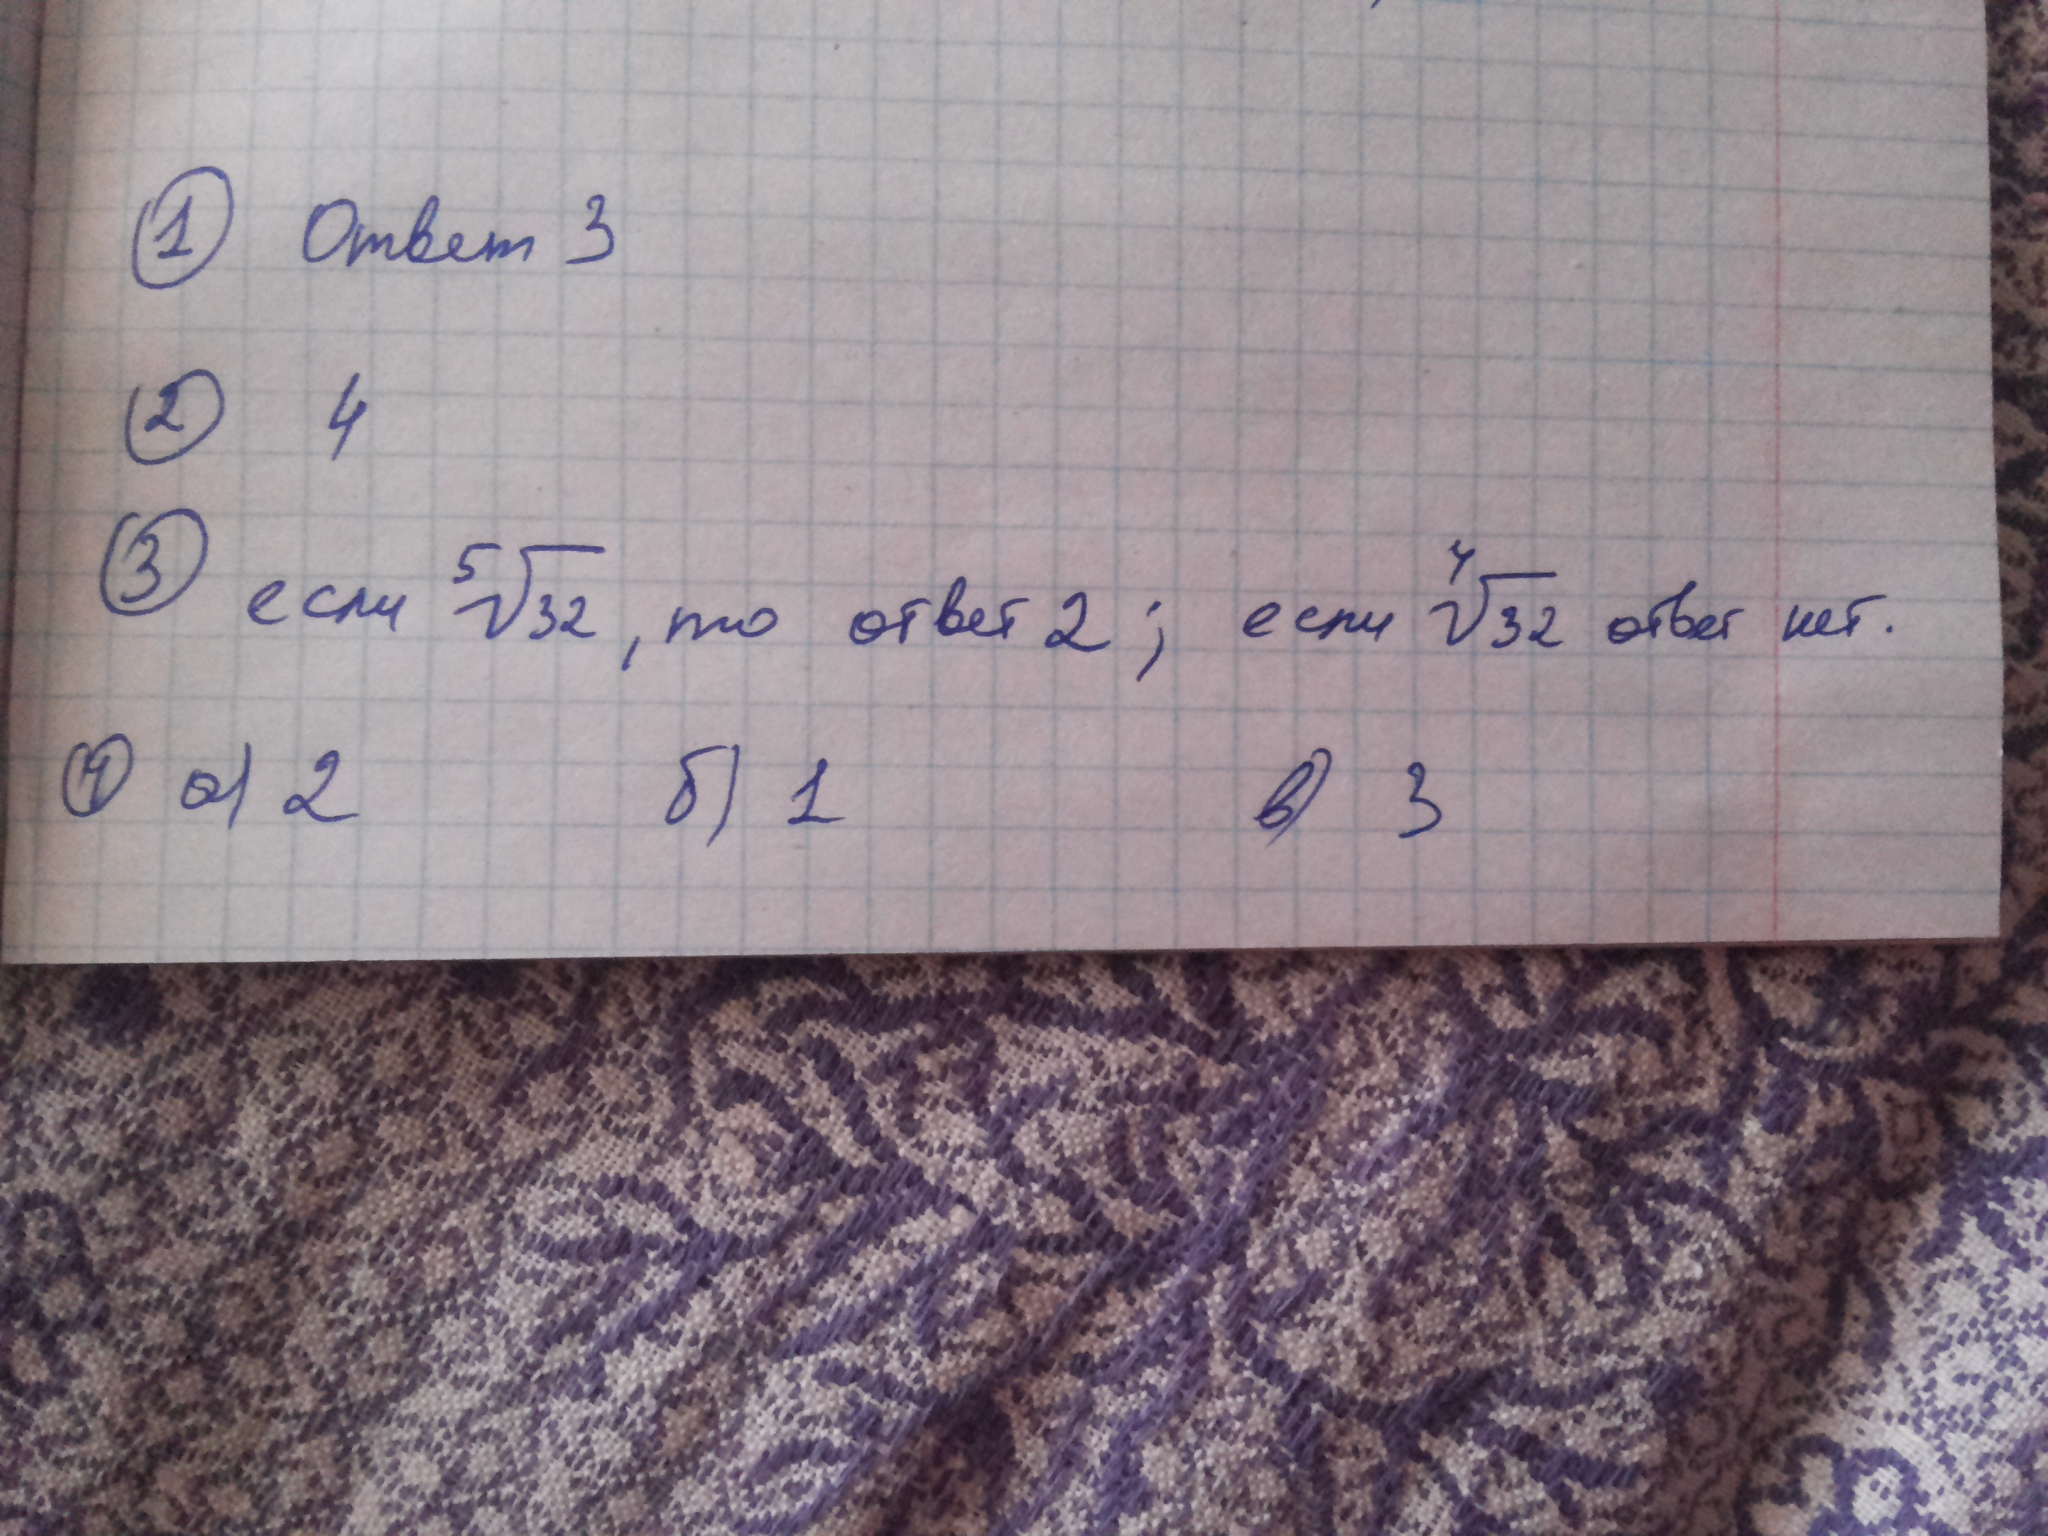 ① Ответ 3
② 4
③ если ⁵√32, то ответ 2; если ⁴√32 ответ нет.
④ а) 2 б) 1 в) 3